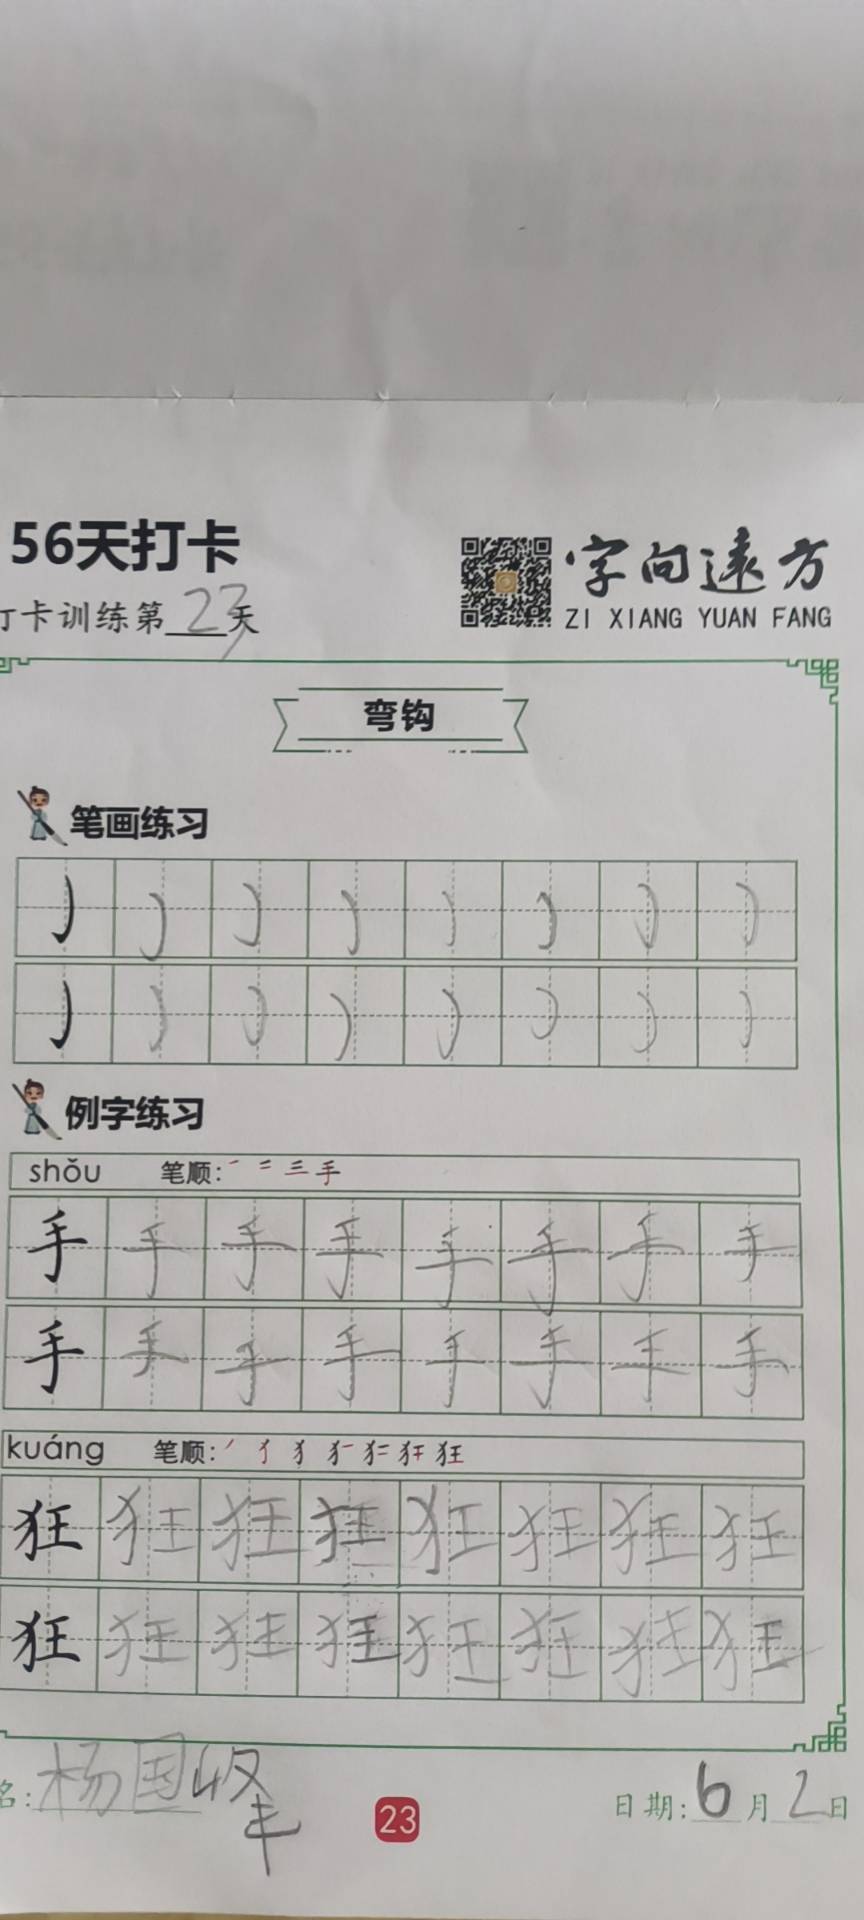 56天打卡
字向远方
打卡训练第23天
ZI XIANG YUAN FANG
弯钩
笔画练习
例字练习
shǒu 笔顺:
手 手 手 手 手 手 手 手
手 手 手 手 手 手 手 手
kuáng 笔顺:
狂 狂 狂 狂 狂 狂 狂 狂
狂 狂 狂 狂 狂 狂 狂 狂
名:杨国峰
23
日期:6月2日